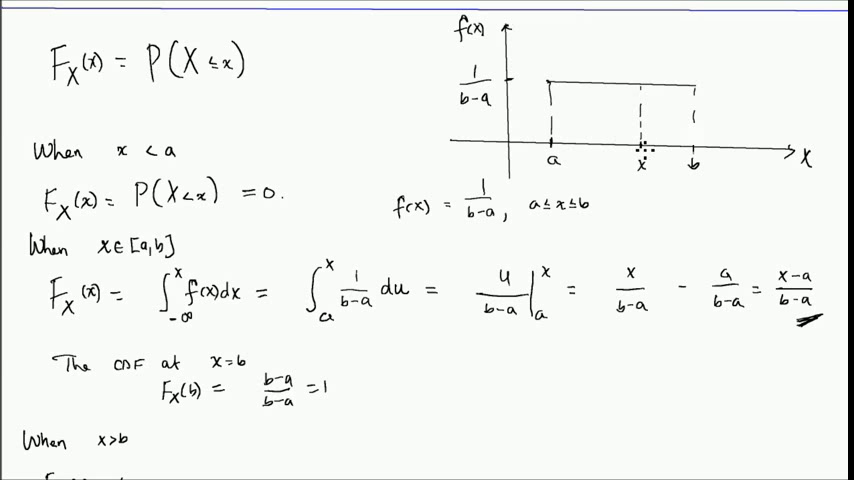 F_X(x) = P(X ≤ x)
f(x)
1/(b-a)
a x b X
When x < a
F_X(x) = P(X < x) = 0.
f(x) = 1/(b-a), a ≤ x ≤ b
When x ∈ [a,b]
F_X(x) = ∫_{-∞}^{x} f(x)dx = ∫_{a}^{x} 1/(b-a) du = u/(b-a) |_{a}^{x} = x/(b-a) - a/(b-a) = (x-a)/(b-a)
The CDF at x=b
F_X(b) = (b-a)/(b-a) = 1
When x>b